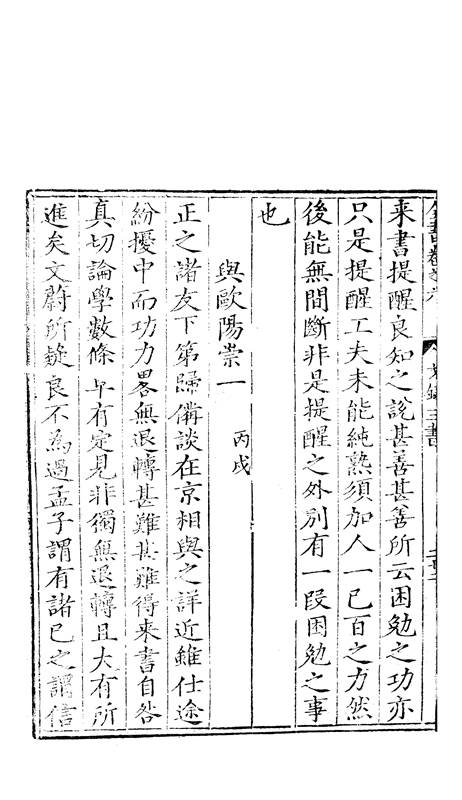 來書提醒良知之說甚善甚善所云困勉之功亦
只是提醒工夫未能純熟須加人一己百之力然
後能無間斷非是提醒之外別有一段困勉之事
也
與歐陽崇一　丙戌
正之諸友下第歸備談在京相與之詳近雖仕途
紛擾中而功力畧無退轉甚難甚難得來書自咎
真切論學數條卓有定見非獨無退轉且大有所
進矣文蔚所疑良不為過孟子謂有諸己之謂信